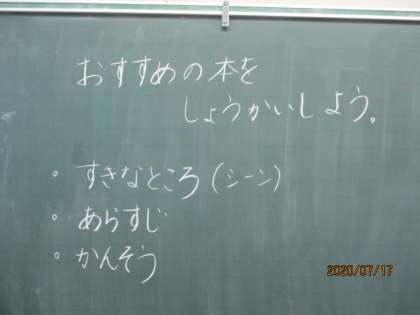 おすすめの本を
しょうかいしよう。
・すきなところ(シーン)
・あらすじ
・かんそう
2020/07/17